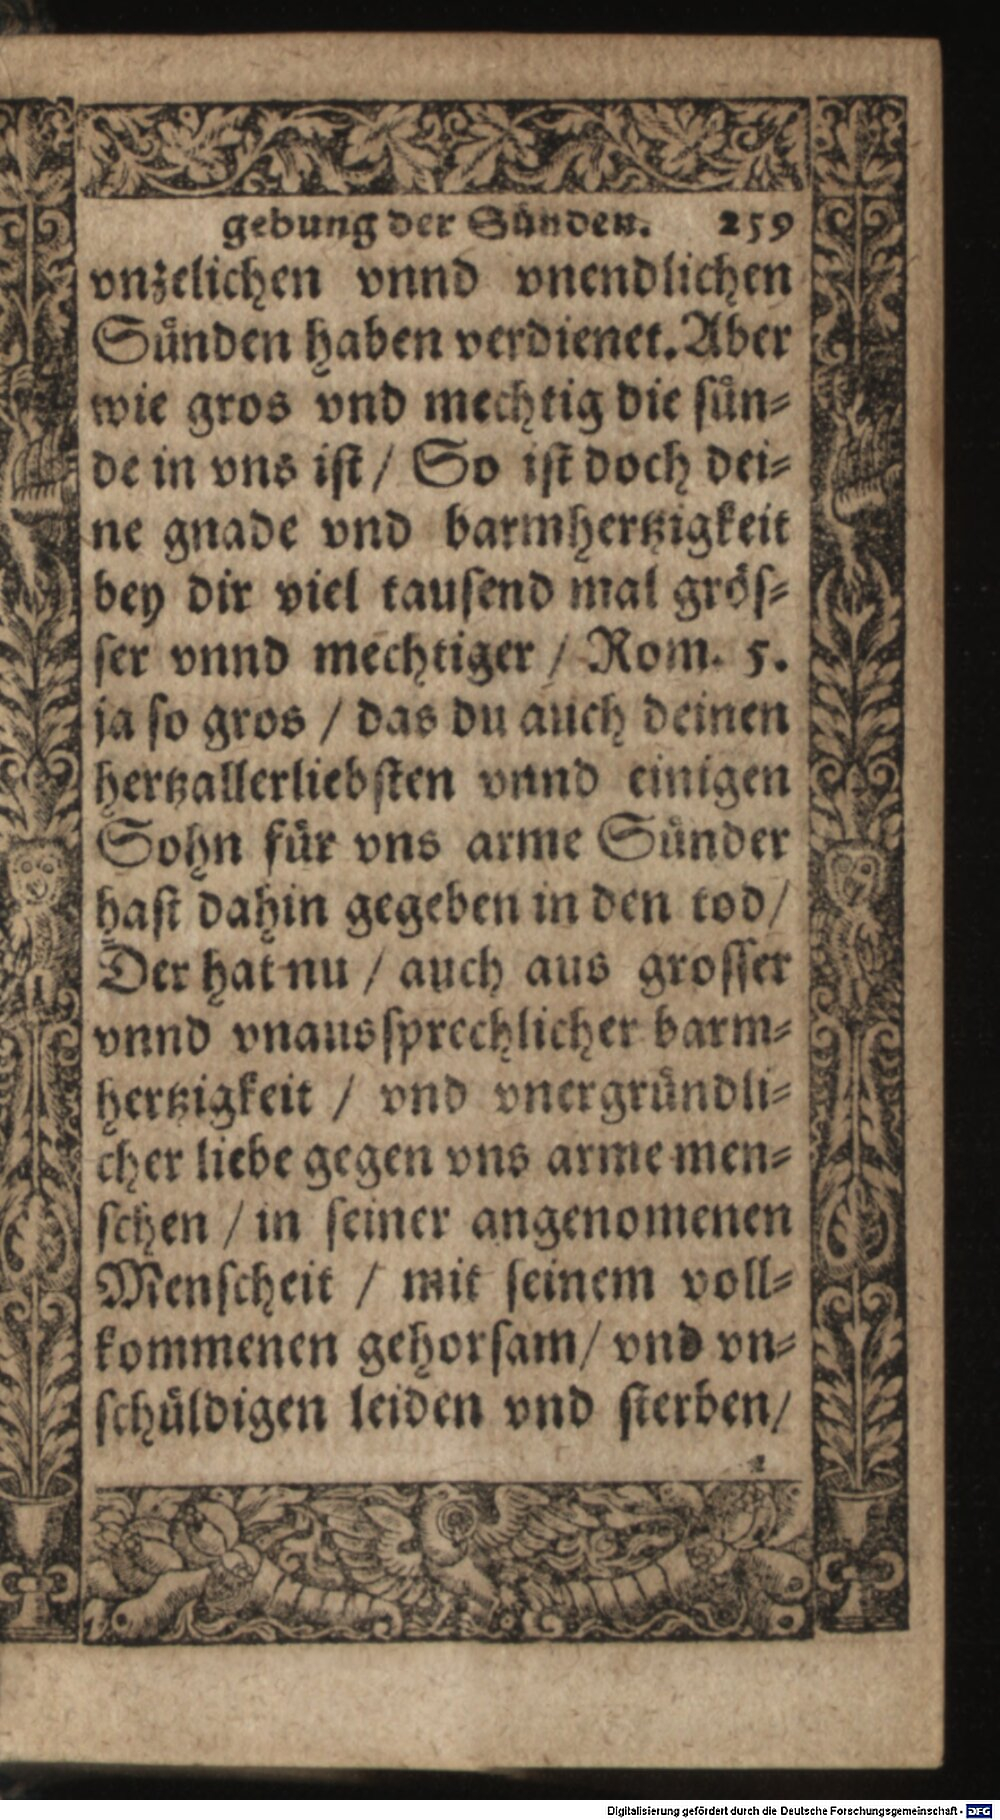 gebung der Sünden. 259
vnzelichen vnnd vnendlichen
Sünden haben verdienet. Aber
wie gros vnd mechtig die sün⸗
de in vns ist / So ist doch dei⸗
ne gnade vnd barmhertzigkeit
bey dir viel tausend mal grös⸗
ser vnnd mechtiger / Rom. 5.
ja so gros / das du auch deinen
hertzallerliebsten vnnd einigen
Sohn für vns arme Sünder
hast dahin gegeben in den tod /
Der hat nu / auch aus grosser
vnnd vnaussprechlicher barm⸗
hertzigkeit / vnd vnergründli⸗
cher liebe gegen vns arme men⸗
schen / in seiner angenomenen
Menscheit / mit seinem voll⸗
kommenen gehorsam / vnd vn⸗
schüldigen leiden vnd sterben /
Digitalisierung gefördert durch die Deutsche Forschungsgemeinschaft - DFG